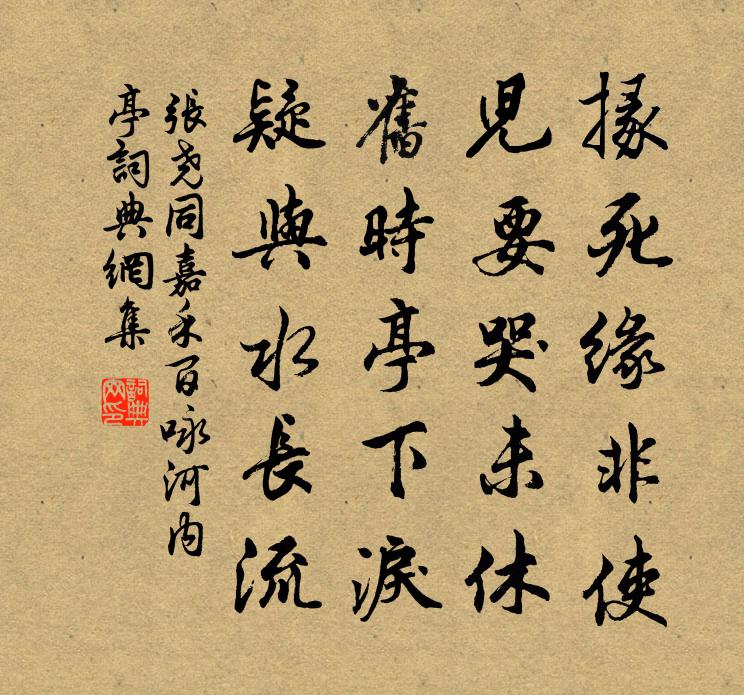 掾死缘非使
児要哭未休
舊時亭下淚
疑與水長流
張堯同嘉禾百咏河内
亭詞典網集
詞典
网印